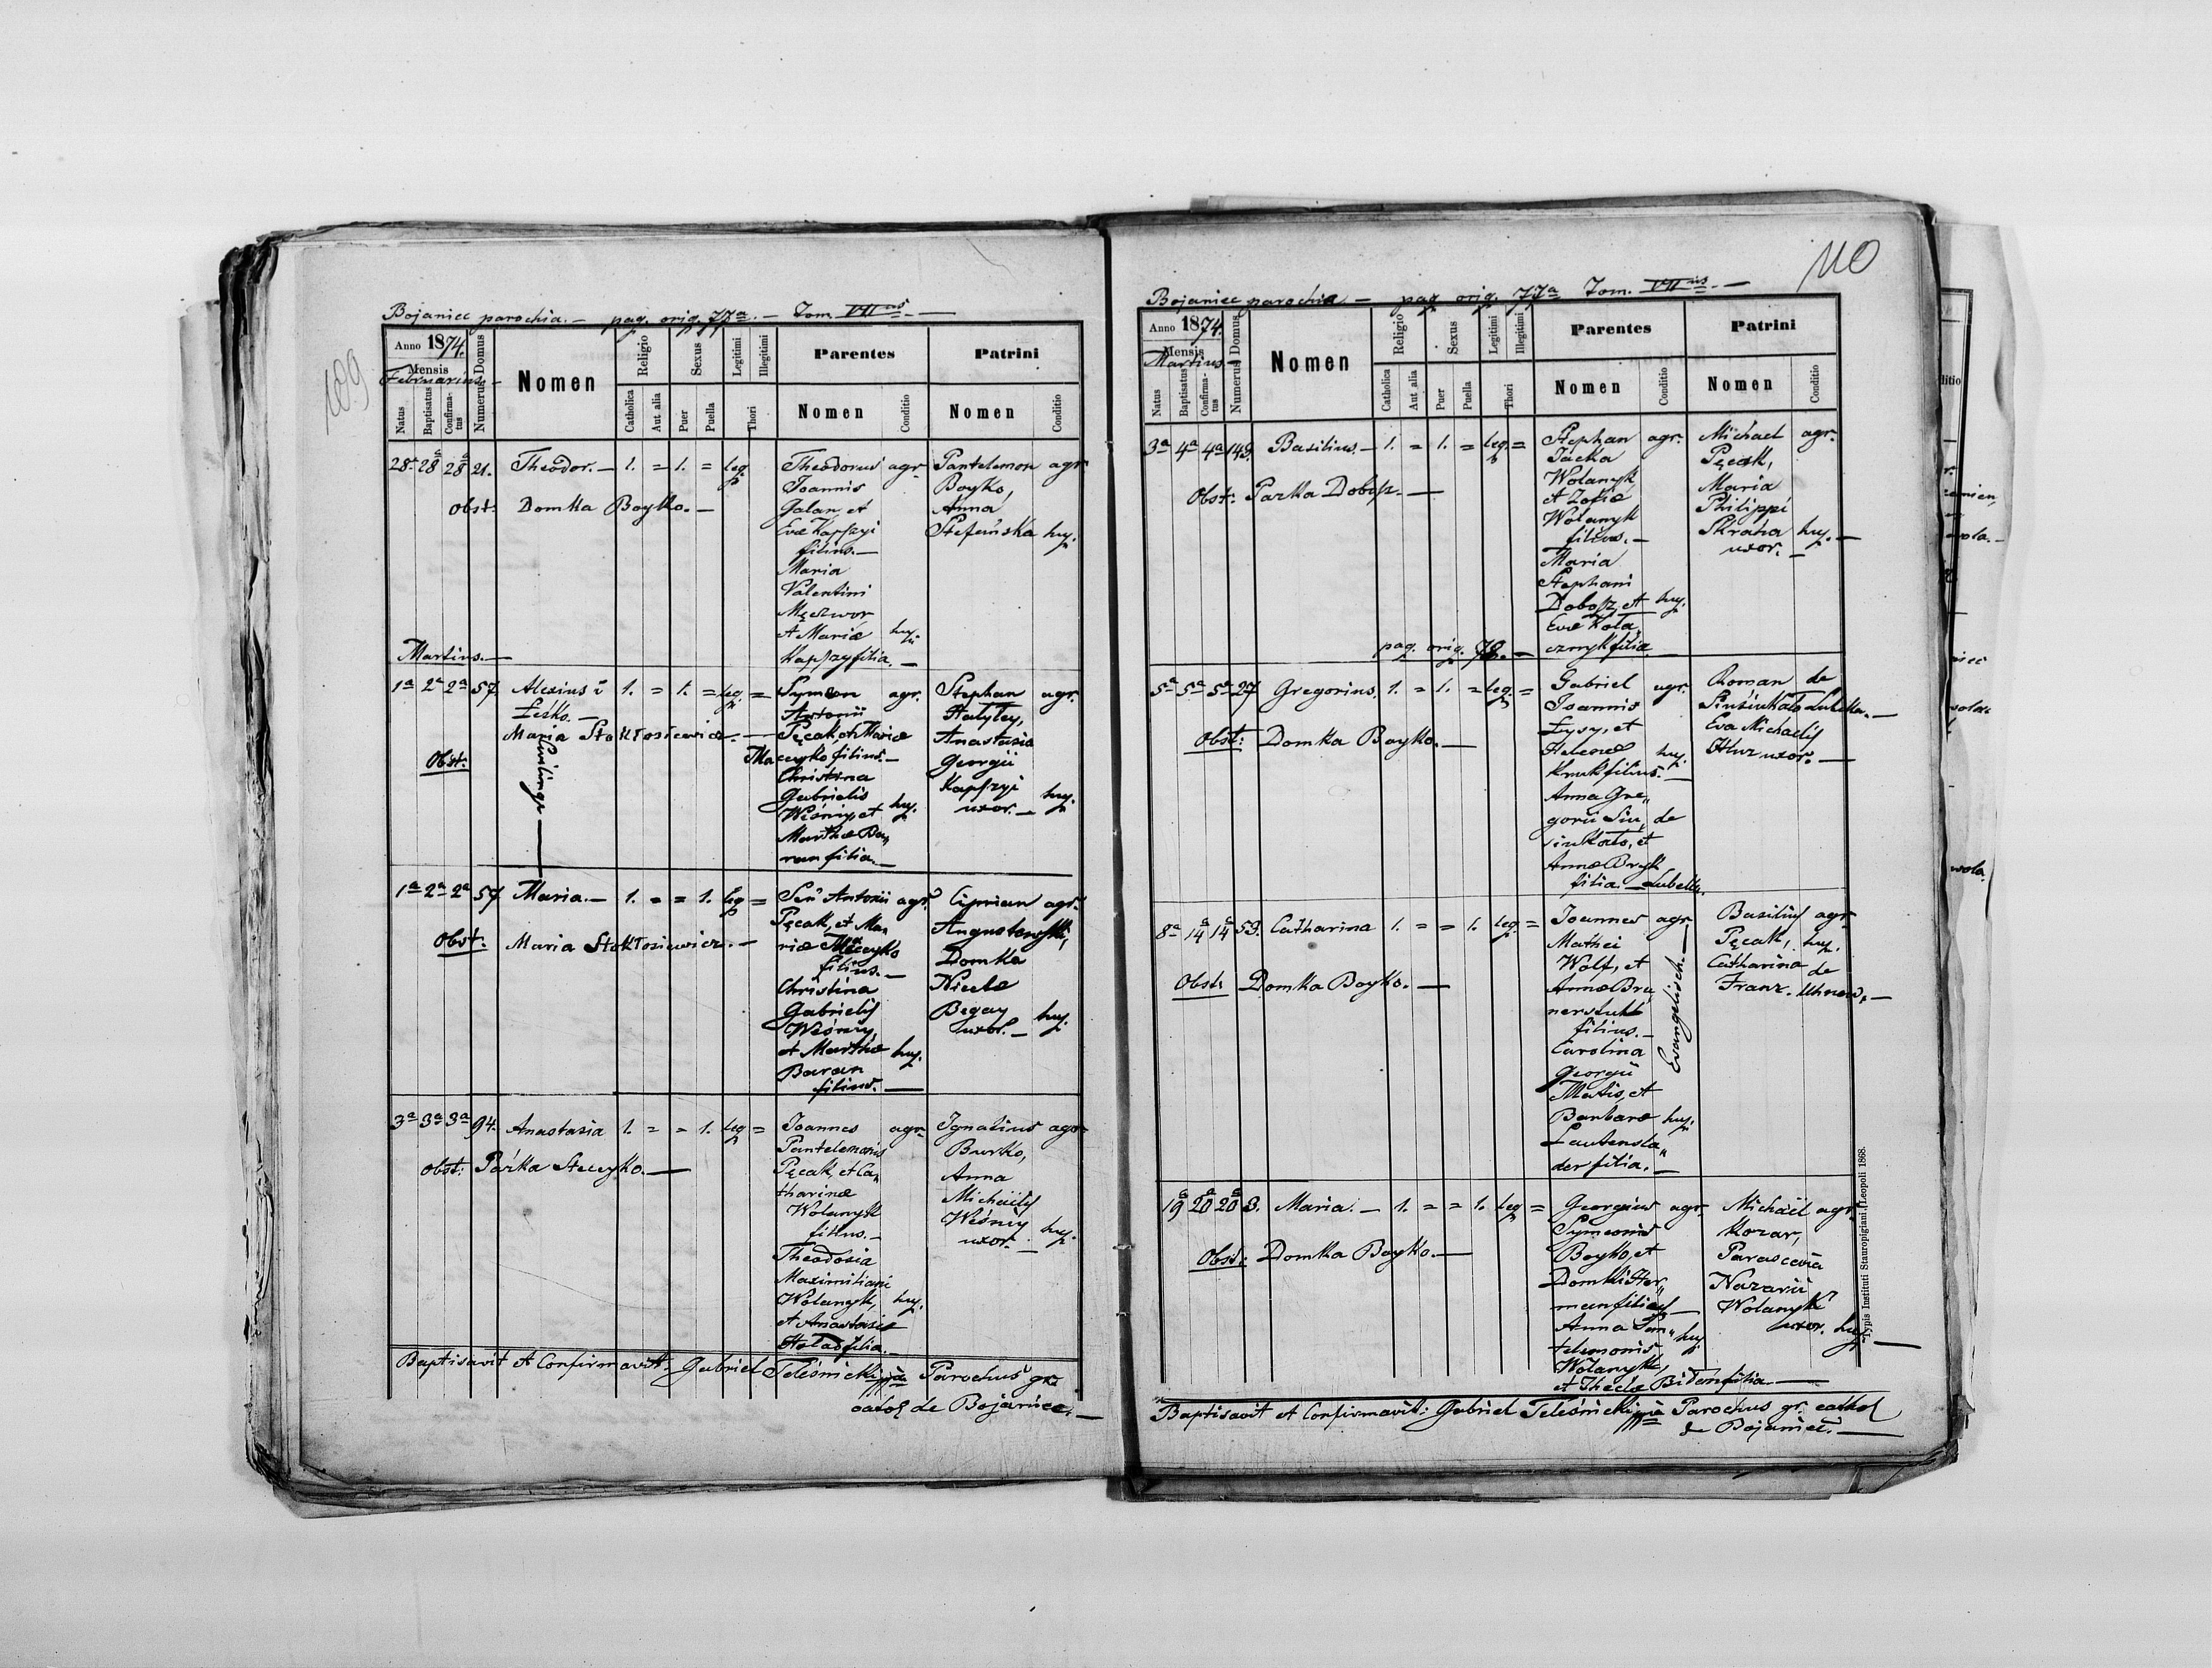 109
Bojaniec parochia. — pag. orig. 77a. — Tom. VIIus. —
Anno 1874.
Mensis
Februarius
Natus
Baptisatus
Confirma-
tus
Numerus Domus
Nomen
Religio
Catholica
Aut alia
Sexus
Puer
Puella
Legitimi
Illegitimi
Thori
Parentes
Nomen
Conditio
Patrini
Nomen
Conditio
28a 28a 28a 21. Theodor. — 1. = 1. = leg
Obst: Domka Boyko. —
Theodorus agr.
Joannis
Galan, et
Evæ Kapszyi
filius. —
Maria
Valentini
Męczwor
et Mariæ huj.
Kapszy filia. —
Pantelemon agr.
Boyko,
Anna
Stefańska huj.
Martius. —
1a 2a 2a 57. Alexius i 1. = 1. = leg. =
Leśko. —
Maria Stokłosiewicz. —
Obst:
Zwilinge —
Symeon agr.
Antonii
Pęcak et Mariæ
Maceyko filius. —
Christina
Gabrielis
Wiśniy, et huj.
Marthæ Ba„
ran filia. —
Stephan agr.
Hatyley,
Anastasia
Georgii
Kapszyi
uxor. — huj.
1a 2a 2a 57 Maria. — 1. = = 1. leg =
Obst. Maria Stokłosiewicz. —
Señ Antonii agr.
Pęcak, et Ma„
riæ Maceyko
filius. —
Christina
Gabrielis
Wiśniy,
et Marthæ huj.
Baran
filius. —
Ciprian agr.
Augustowski,
Domka
Nicolæ
Begay huj.
uxor. —
3a 3a 3a 94. Anastasia 1. = = 1. leg =
Obst: Parka Steceyko. —
Joannes agr.
Pantelemonis
Pęcak, et Ca„
tharinæ
Wolanyk
filius. —
Theodosia
Maximiliani
Wolanyk, huj.
et Anastasiæ
filia. —
Ignatius agr.
Burko,
Anna
Michaelis
Wiśniy huj.
uxor. —
Baptisavit et Confirmavit: Gabriel Teleśnicki mpa Parochus gr.
cathol de Bojaniec. —
110
Bojaniec parochia. — pag. orig. 77a Tom. VIIus. —
Anno 1874.
Mensis
Martius.
Natus
Baptisatus
Confirma-
tus
Numerus Domus
Nomen
Religio
Catholica
Aut alia
Sexus
Puer
Puella
Legitimi
Illegitimi
Thori
Parentes
Nomen
Conditio
Patrini
Nomen
Conditio
3a 4a 4a 149. Basilius. — 1. = 1. = leg. =
Obst: Parka Dobosz. —
Stephan agr.
Jacka
Wolanyk,
et Zofiæ
Wolanyk
filius. —
Maria
Stephani
Dobosz, et huj.
Evæ Kola„
cznyk filia. —
Michael agr.
Pęcak,
Maria
Philippi
Skraha huj. —
uxor. —
pag. orig. 78. —
5a 5a 5a 27 Gregorius. 1. = 1. = leg. =
Obst: Domka Boyko. —
Gabriel agr.
Joannis
Łysy, et
Helenæ huj.
Kruk filius. —
Anna Gre„
gorii Siu„ de
sinkalo, et
Annæ Bryk
filia. — Lubella.
Roman de
Siusiukało Lubella. —
Eva Michaelis
Hluz uxor. —
8a 14a 14a 53. Catharina 1. = = 1. leg. =
Obst: Domka Boyko. —
Joannes agr.
Mathei
Wolf, et
Annæ Bru
filius. —
Carolina
Georgii
Matis, et
Barbaræ huj.
Lautensla„
der filia. —
Evangelisch. —
Basilius agr.
Pęcak, huj.
Catharina de
Franz. Uhnow. —
19a 20a 20a 3. Maria. — 1. = = 1. leg =
Obst: Domka Boyko. —
Georgius agr.
Symeonis
Boyko, et
Domki Her„
man filius —
Anna Pan„ huj
telemonis
Wolanyk,
et Theclæ Bidon filia. —
Michael agr.
Kozar,
Parascevia
Nazarii
Wolanyk
uxor. huj. —
Typis Instituti Stauropigiani. Leopoli 1868.
Baptisavit et Confirmavit: Gabriel Teleśnicki mpa Parochus gr. cathol
de Bojaniec. —